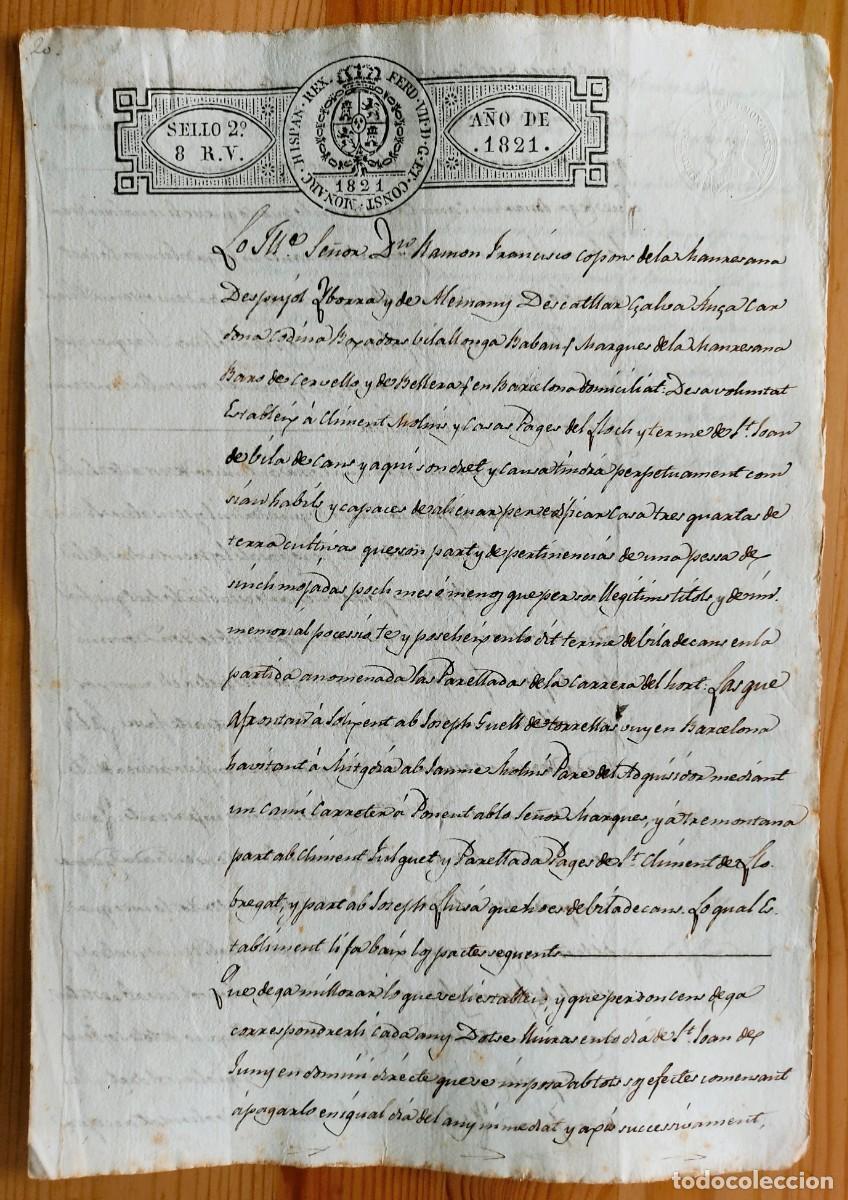 20.
SELLO 2º
8 R.V.
HISPAN · REX · FERD · VII · D · G · ET · CONST · MONARC ·
1821
AÑO DE
.1821.
Lo Ill.e Señor Dn. Ramon Francisco Copons de la Manresana
Despujol Yborra y de Alemany Descatllar Çalsa Ança Car
dona Codina Boxadors Vilallonga Babau y Marques de la Manresana
Baro de Cervello y de Bellera y en Barcelona domiciliat. De sa voluntat
Estableix á Climent Molins y Casas Pages del Lloch y terme de St. Joan
de Vila de Cans y aqui son dret y causa tindrá perpetuament com
sian habils y capaces de alienar per edificar Casa tres quartas de
terra cultivas que son part y de pertinencias de una pessa de
sinch mojadas poch mes ó menos que per sos llegitims titols y de im
memorial pocessió te y poseheix en lo dit terme de Viladecans en la
partida anomenada las Parelladas de la Carrera del hort: Las que
afrontan á Solixent ab Joseph Guell de torrellas vuy en Barcelona
havitant á Mitgdia ab Jaume Molins Pare del Adquisidor mediant
un cami Carreter á Ponent ab lo Señor Marques, y á tremontana
part ab Climent Pulguet y Parellada Pages de St. Climent de Llo
bregat, y part ab Joseph Llusá que ho es de Viladecans. Lo qual Es
tabliment li fa baix los pactes seguents
Que dega millorar lo que se li estableix, y que per don cens dega
correspondrerli cada any Dotse lliuras en lo dia de St. Joan de
Juny en domini directe que se imposa ab tots sos efectes comensant
á pagarlo en igual dia del any inmediat y axis successivament,
todocoleccion